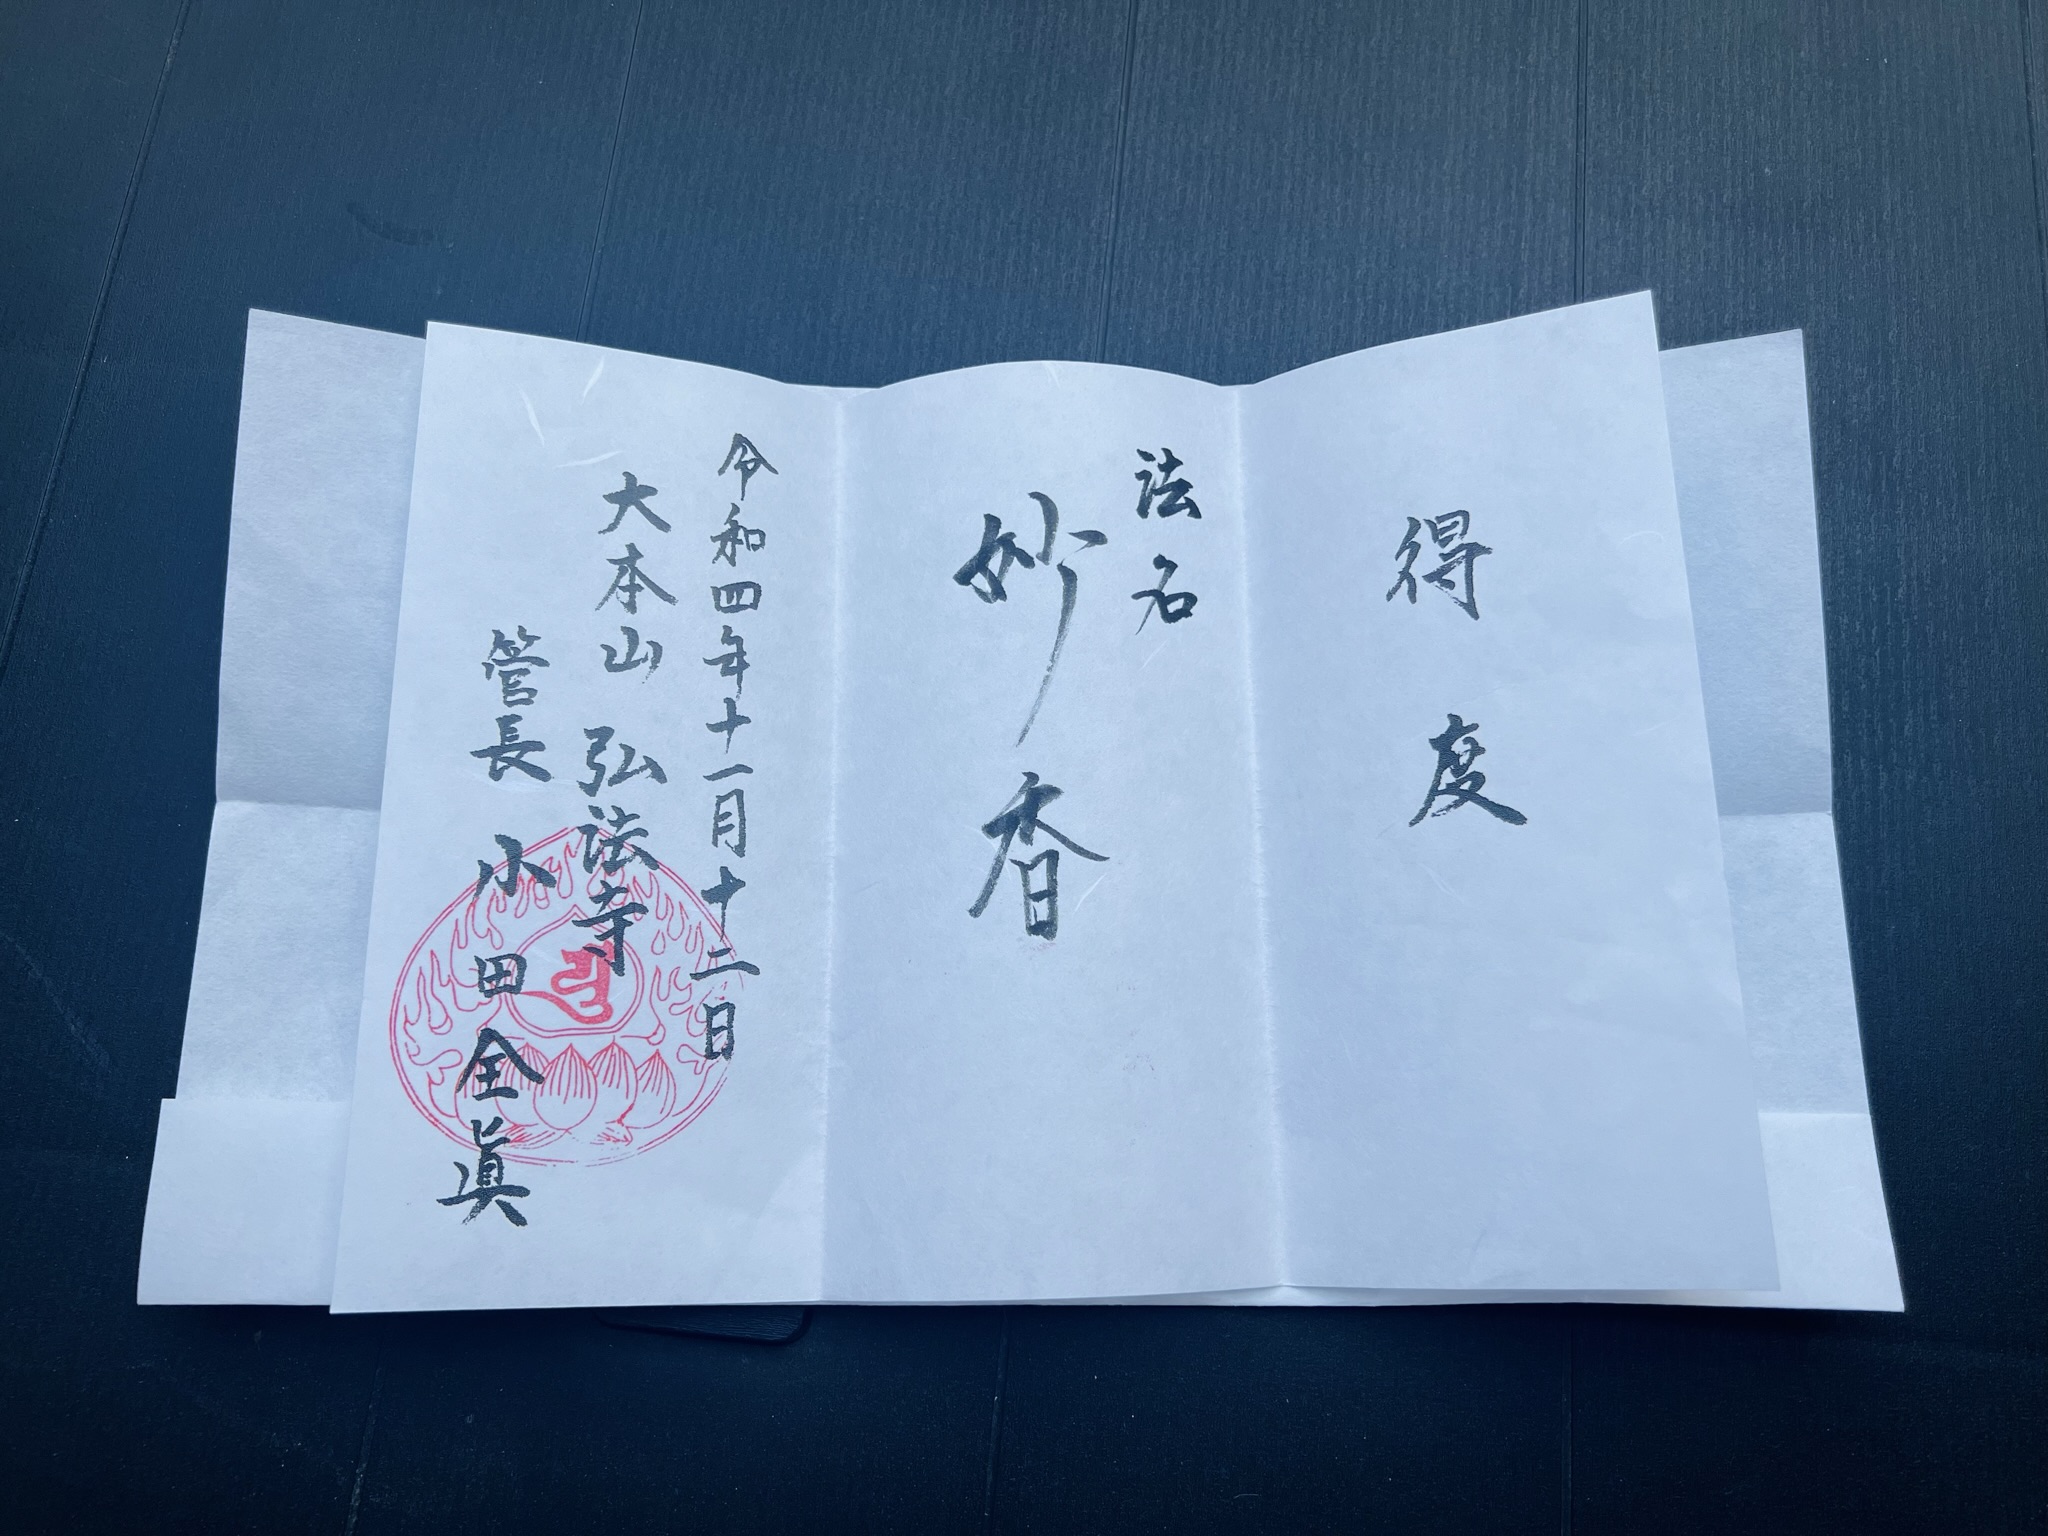 得度
法名
妙香
令和四年十一月十二日
大本山 弘法寺
管長 小田全眞